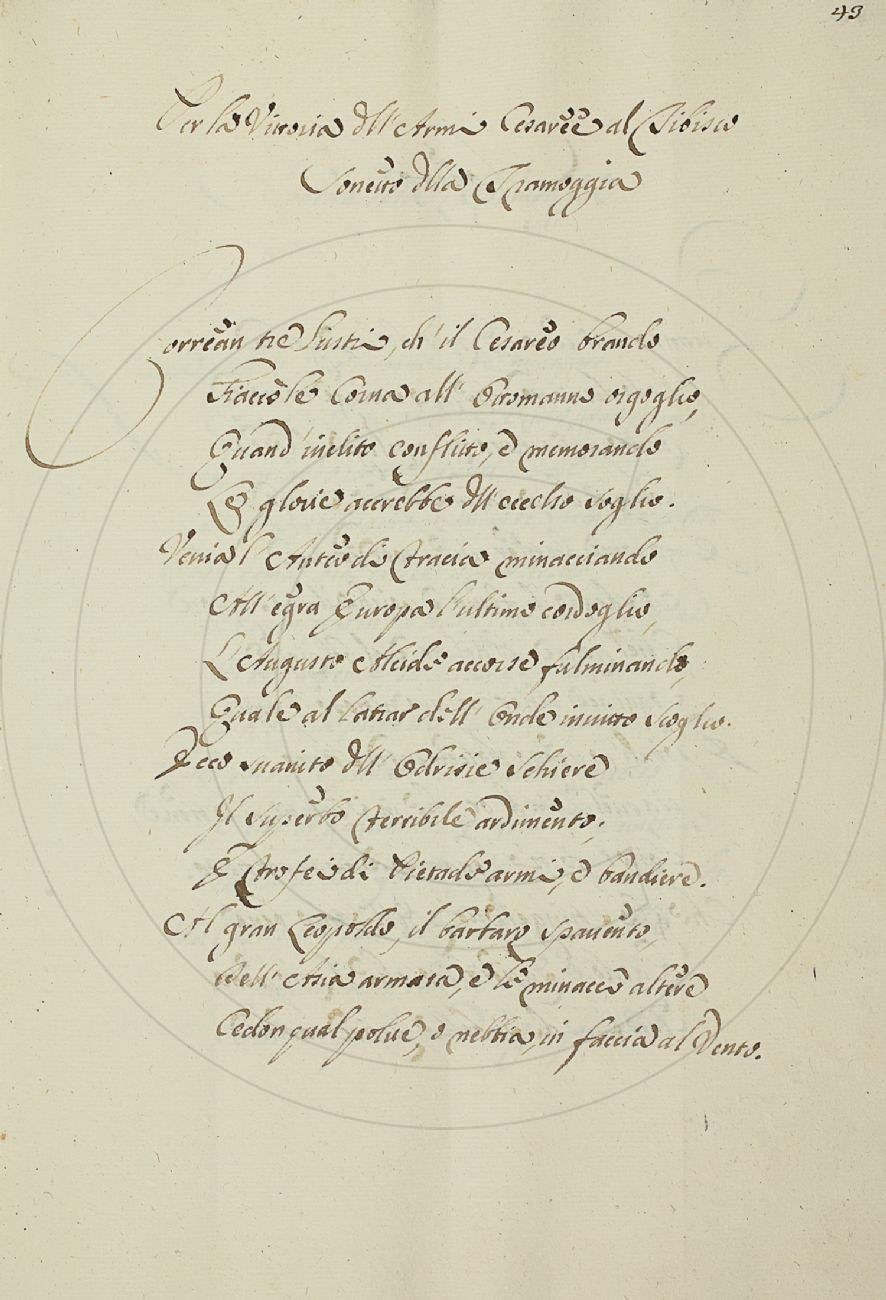 43
Per la Vittoria dell' Armi Cesaree al Tibisco
Sonetto della Tramoggia
Correan tre lustri, ch' il Cesareo brando
Fiaccò le Corna all' Ottomanno orgoglio,
Quand' inclito conflitto, e memorando
Le glorie accrebbe dell' eccelso soglio.
Venia l' Anteo di Tracia minacciando
All' egra Europa l'ultimo cordoglio,
L' Augusto Alcide accorse fulminando,
Quale al latrar dell' Onde invitto scoglio.
Ecco svanito dell' Odrisie Schiere
Il superbo terribile ardimento;
E trofei di Pietade armi, e bandiere.
Al gran Leopoldo, il barbaro spavento,
Dell' Asia armata, e le minacce altere
Cedon qual polve, o nebbia, in faccia al Vento.